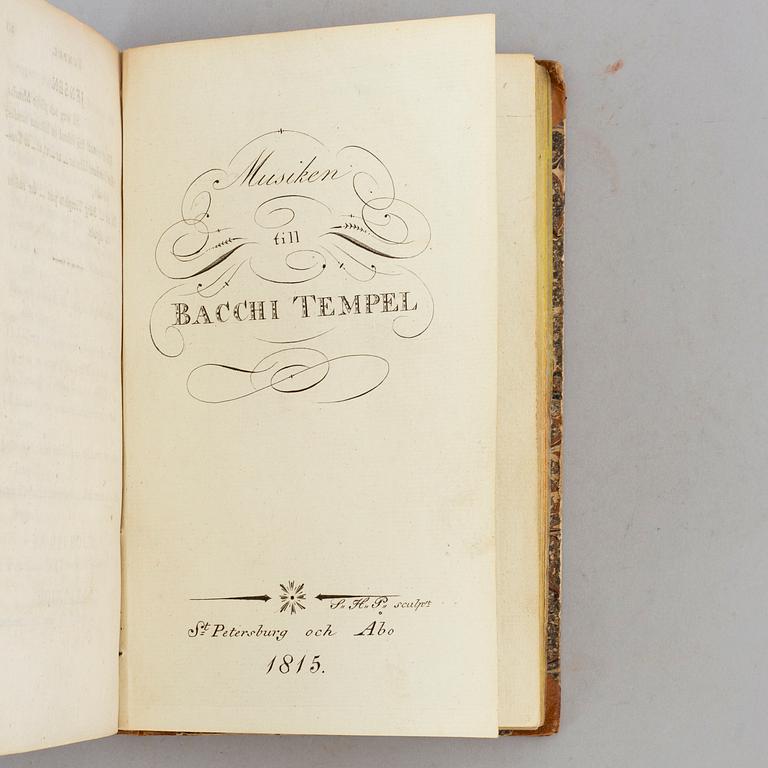 Musiken
till
BACCHI TEMPEL
S. H. P. sculps:t
St Petersburg och Åbo
1815.